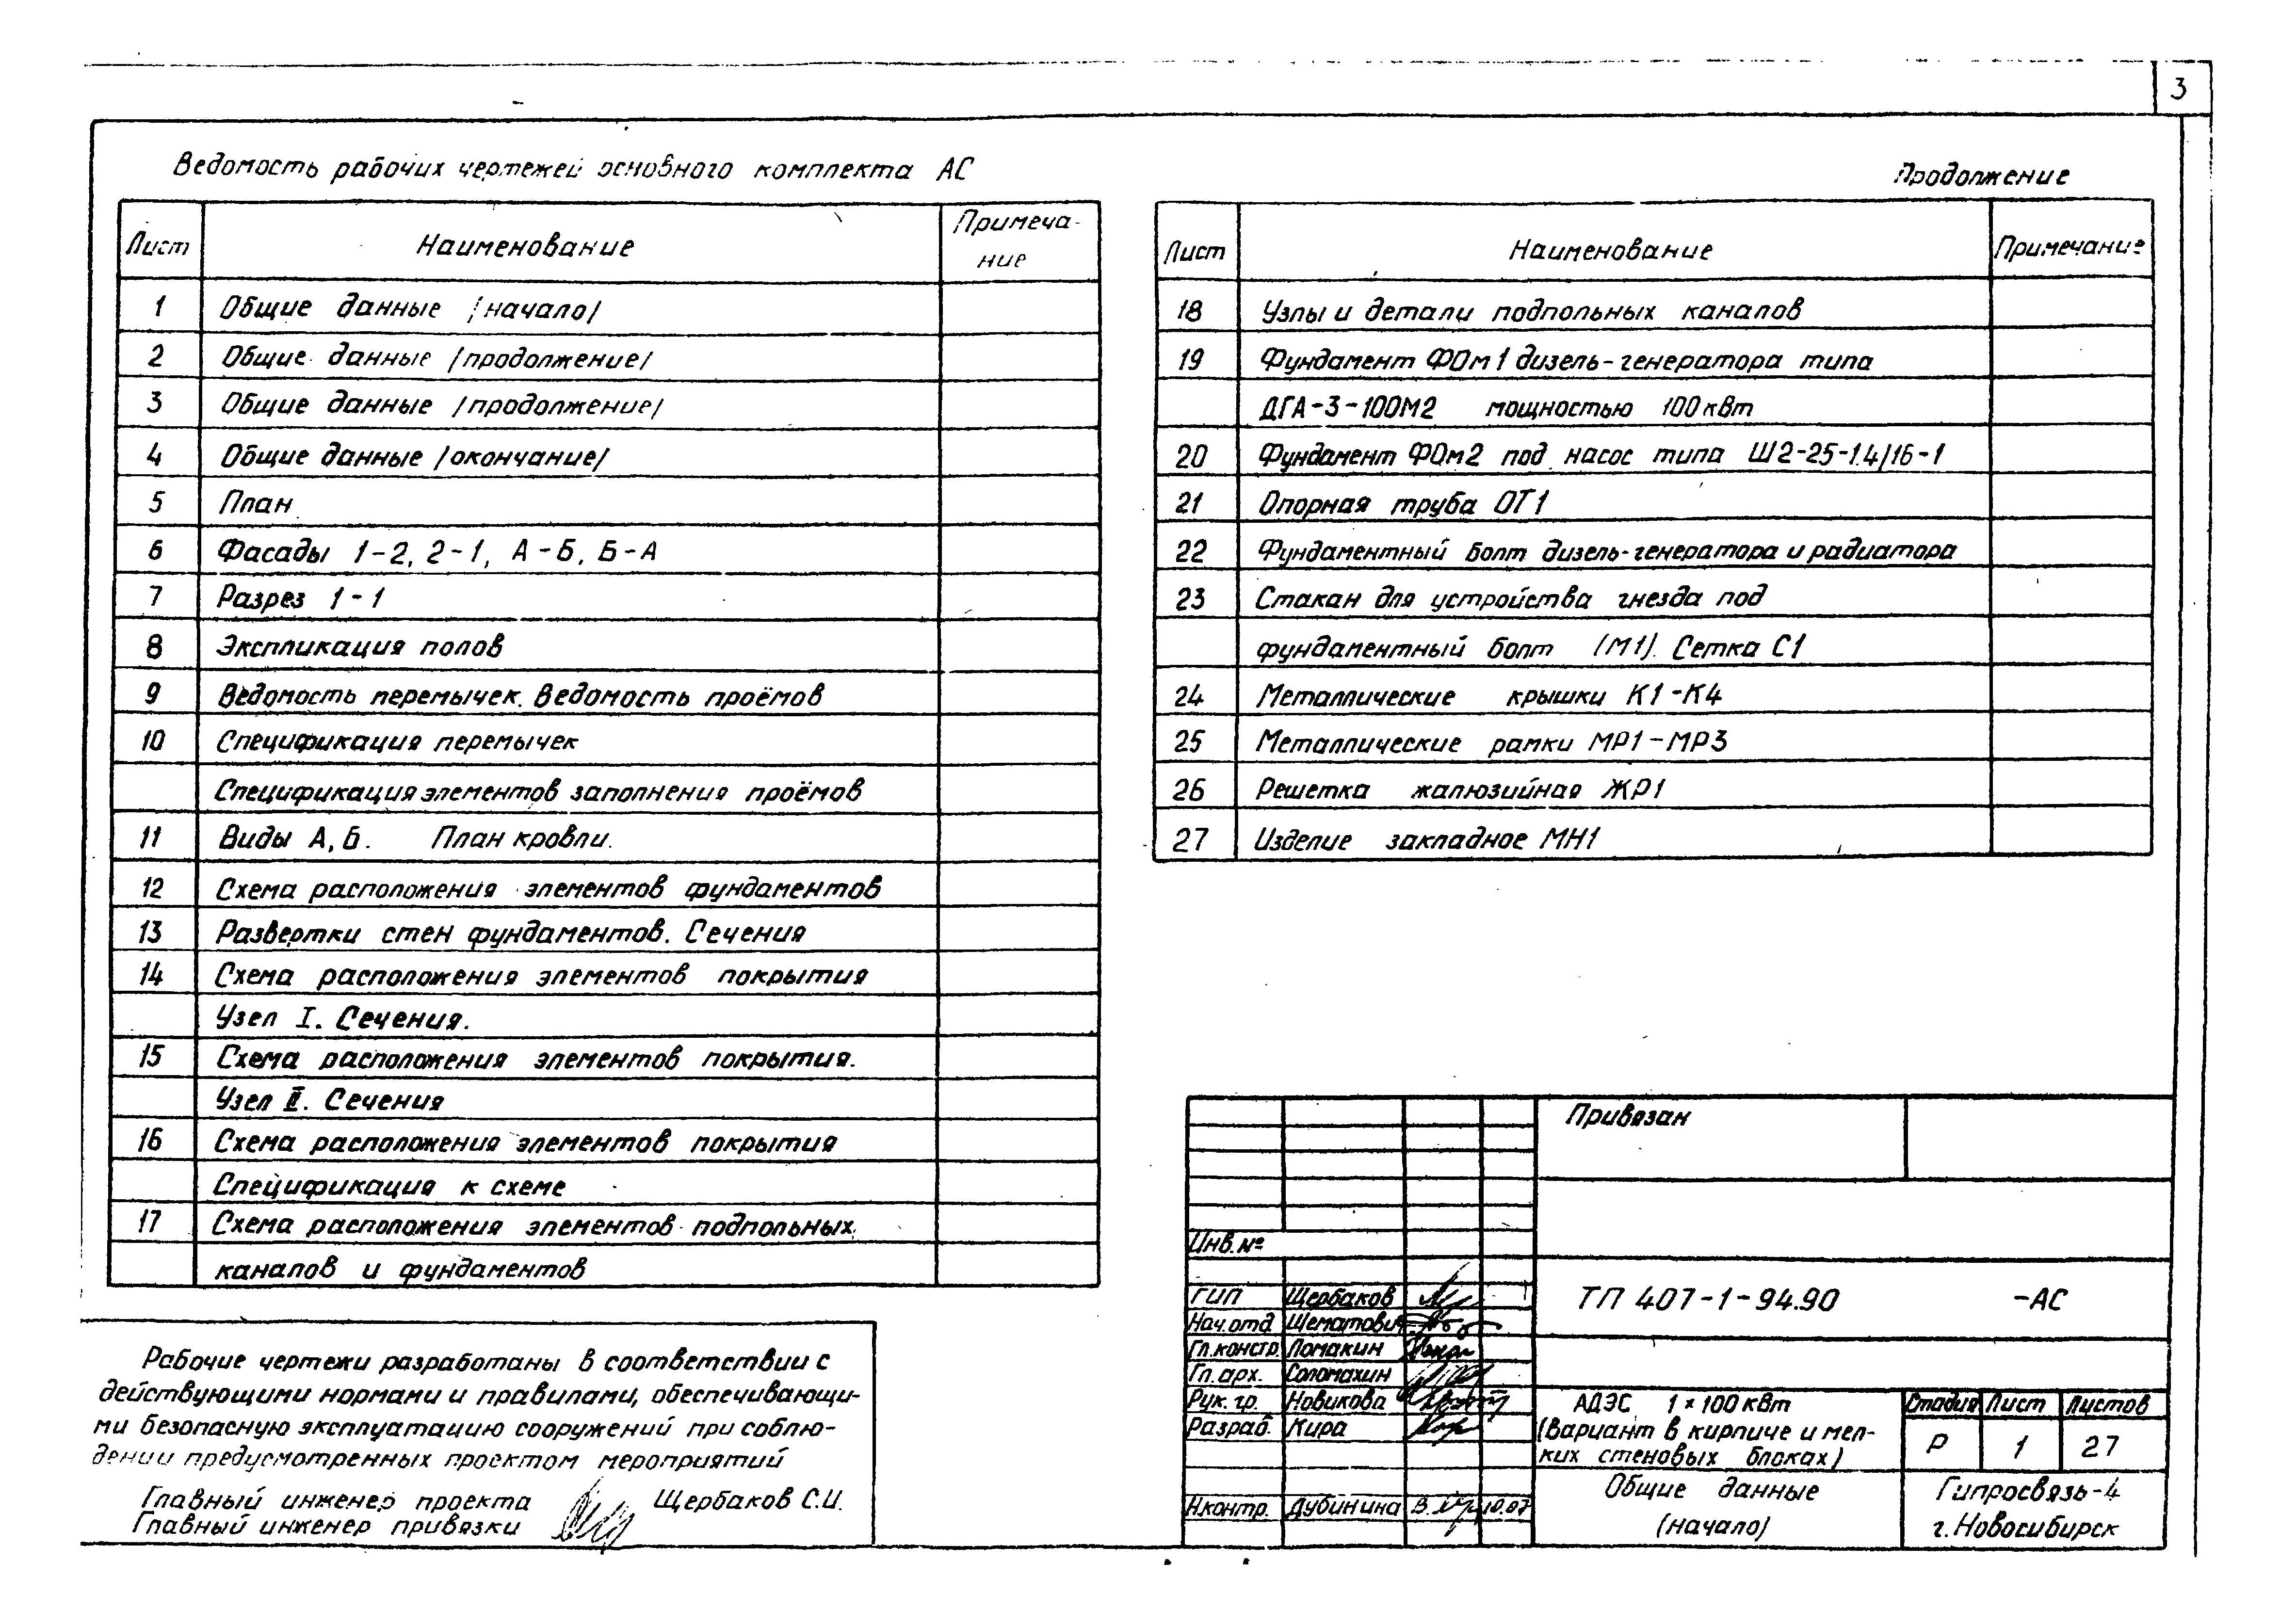 3
Ведомость рабочих чертежей основного комплекта АС
Лист Наименование Примеча-
ние
1 Общие данные /начало/
2 Общие данные /продолжение/
3 Общие данные /продолжение/
4 Общие данные /окончание/
5 План
6 Фасады 1-2, 2-1, А-Б, Б-А
7 Разрез 1-1
8 Экспликация полов
9 Ведомость перемычек. Ведомость проёмов
10 Спецификация перемычек
Спецификация элементов заполнения проёмов
11 Виды А, Б. План кровли.
12 Схема расположения элементов фундаментов
13 Развертки стен фундаментов. Сечения
14 Схема расположения элементов покрытия
Узел I. Сечения.
15 Схема расположения элементов покрытия.
Узел II. Сечения
16 Схема расположения элементов покрытия
Спецификация к схеме
17 Схема расположения элементов подпольных
каналов и фундаментов
Продолжение
Лист Наименование Примечание
18 Узлы и детали подпольных каналов
19 Фундамент ФОм1 дизель-генератора типа
ДГА-3-100М2 мощностью 100 кВт
20 Фундамент ФОм2 под насос типа Ш2-25-1.4/16-1
21 Опорная труба ОТ1
22 Фундаментный болт дизель-генератора и радиатора
23 Стакан для устройства гнезда под
фундаментный болт (М1). Сетка С1
24 Металлические крышки К1-К4
25 Металлические рамки МР1-МР3
26 Решетка жалюзийная ЖР1
27 Изделие закладное МН1
Рабочие чертежи разработаны в соответствии с
действующими нормами и правилами, обеспечивающи-
ми безопасную эксплуатацию сооружений при соблю-
дении предусмотренных проектом мероприятий
Главный инженер проекта Щербаков С.И.
Главный инженер привязки
Привязан
Инв.№
ГИП Щербаков
Нач.отд Шематович
Гл.констр. Ломакин
Гл.арх. Соломахин
Рук. гр. Новикова
Разраб. Кира
Н.контр. Дубинина 10.07
ТП 407-1-94.90 -АС
АДЭС 1×100 кВт
(Вариант в кирпиче и мел-
ких стеновых блоках)
Стадия Лист Листов
Р 1 27
Общие данные
(начало)
Гипросвязь-4
г. Новосибирск